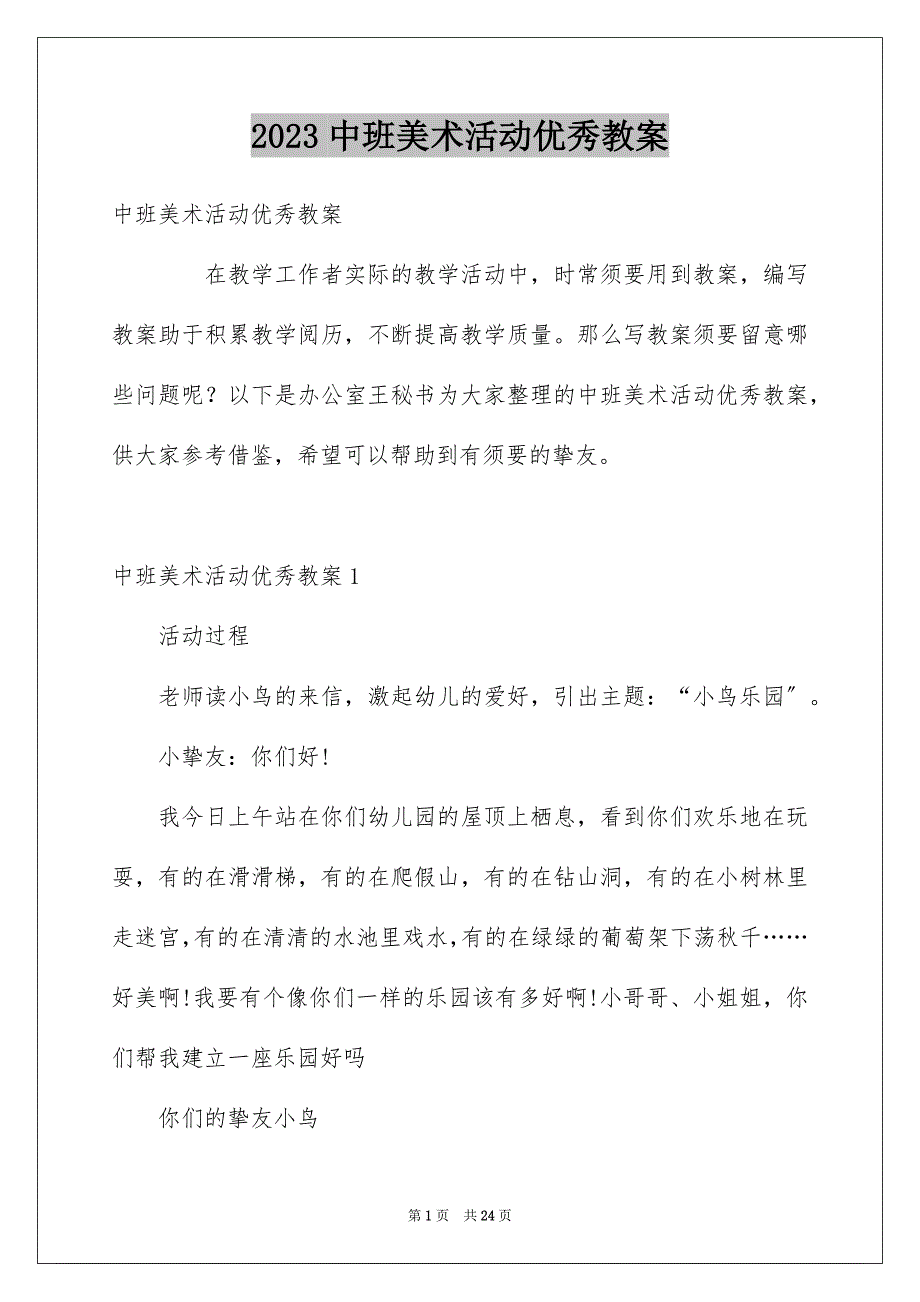 2023中班美术活动优秀教案
中班美术活动优秀教案
在教学工作者实际的教学活动中，时常须要用到教案，编写
教案助于积累教学阅历，不断提高教学质量。那么写教案须要留意哪
些问题呢？以下是办公室王秘书为大家整理的中班美术活动优秀教案，
供大家参考借鉴，希望可以帮助到有须要的挚友。
中班美术活动优秀教案1
活动过程
老师读小鸟的来信，激起幼儿的爱好，引出主题：“小鸟乐园〞。
小挚友：你们好！
我今日上午站在你们幼儿园的屋顶上栖息，看到你们欢乐地在玩
耍，有的在滑滑梯，有的在爬假山，有的在钻山洞，有的在小树林里
走迷宫，有的在清清的水池里戏水，有的在绿绿的葡萄架下荡秋千……
好美啊！我要有个像你们一样的乐园该有多好啊！小哥哥、小姐姐，你
们帮我建立一座乐园好吗
你们的挚友小鸟
第1页 共24页